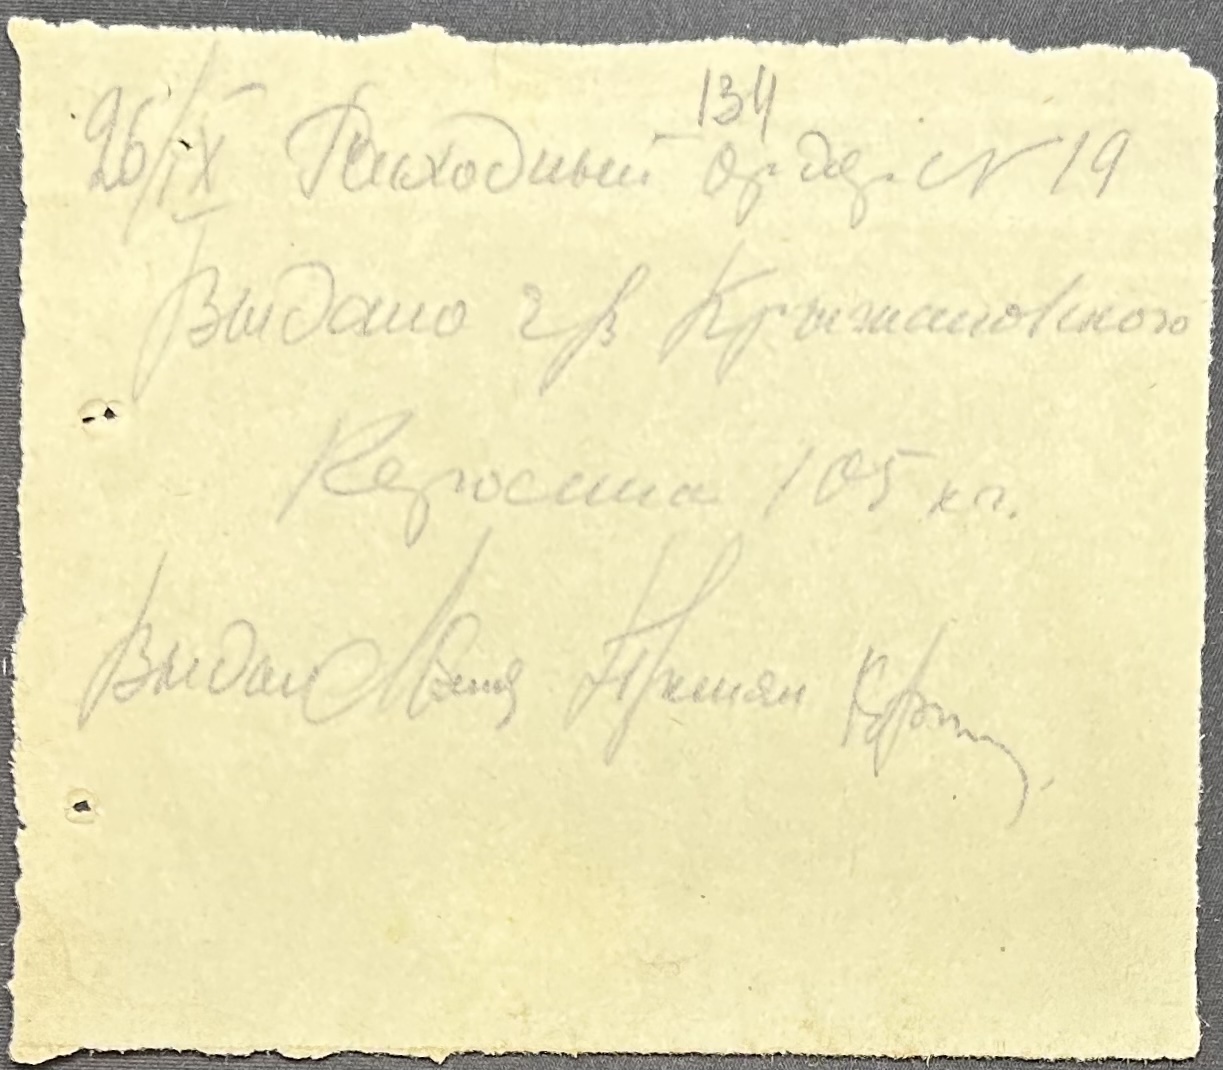 134
26/IX Расходный орде. N 19
Выдано гр Крыжановского
Керосина 105 кг.
Выдал Принял